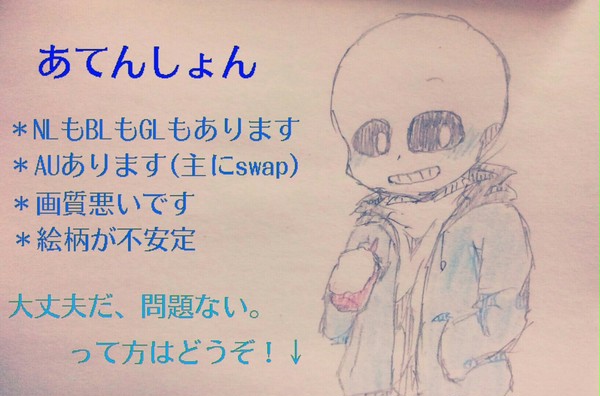 あてんしょん
＊NLもBLもGLもあります
＊AUあります(主にswap)
＊画質悪いです
＊絵柄が不安定
大丈夫だ、問題ない。
って方はどうぞ！↓